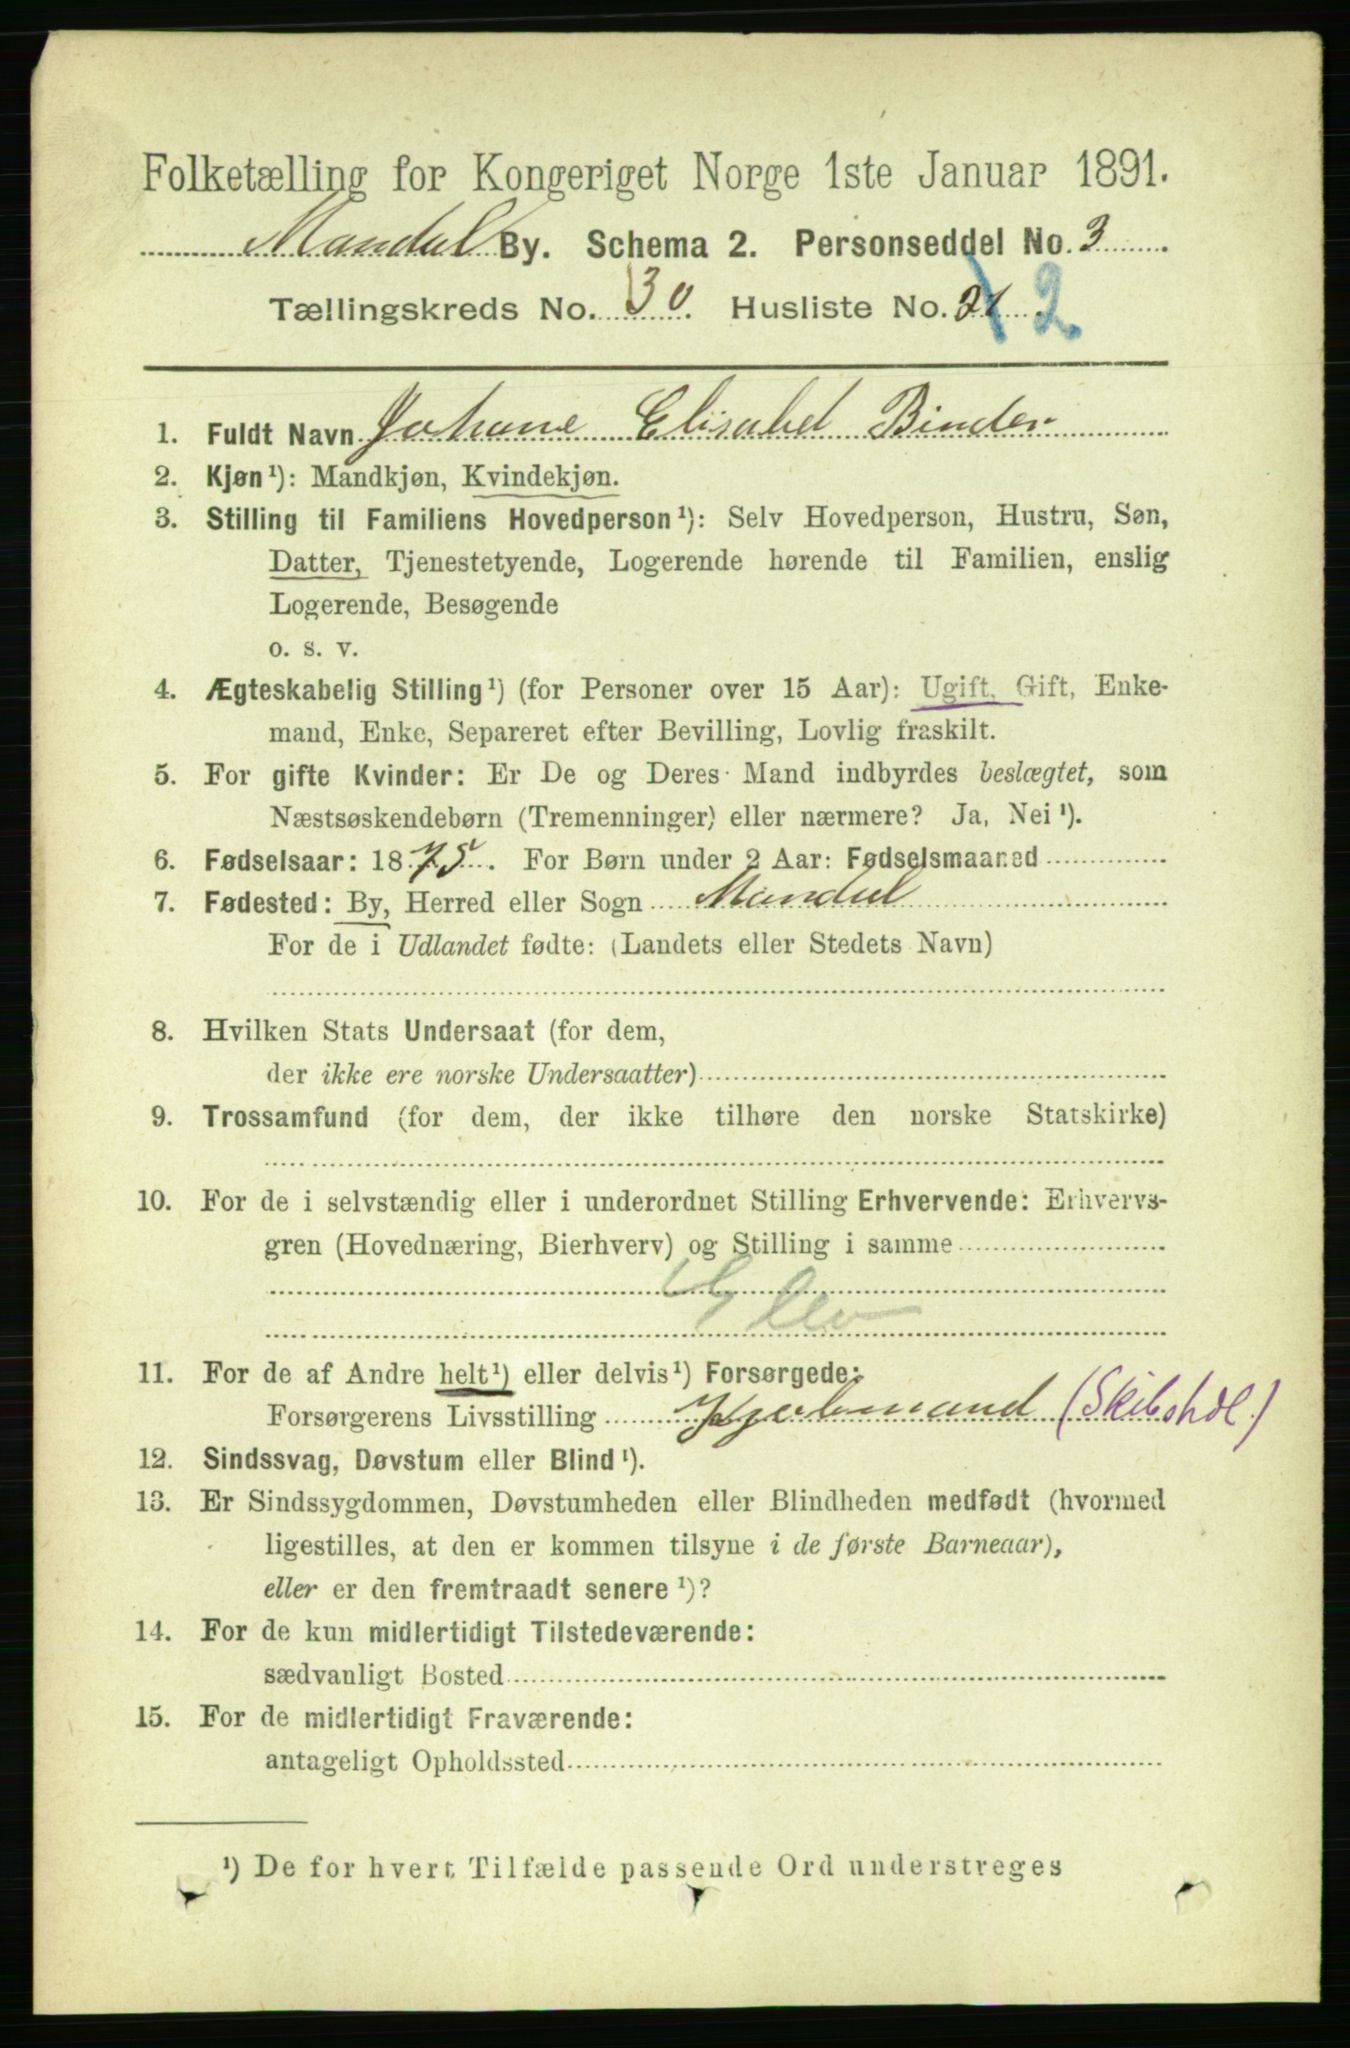 Folketælling for Kongeriget Norge 1ste Januar 1891.
Mandal By. Schema 2. Personseddel No. 3
Tællingskreds No. 30. Husliste No. 21 2
1. Fuldt Navn Johane Elisabet Binder
2. Kjøn¹): Mandkjøn, Kvindekjøn.
3. Stilling til Familiens Hovedperson¹): Selv Hovedperson, Hustru, Søn,
Datter, Tjenestetyende, Logerende hørende til Familien, enslig
Logerende, Besøgende
o. s. v.
4. Ægteskabelig Stilling¹) (for Personer over 15 Aar): Ugift, Gift, Enke-
mand, Enke, Separeret efter Bevilling, Lovlig fraskilt.
5. For gifte Kvinder: Er De og Deres Mand indbyrdes beslægtet, som
Næstsøskendebørn (Tremenninger) eller nærmere? Ja, Nei¹).
6. Fødselsaar: 1875. For Børn under 2 Aar: Fødselsmaaned
7. Fødested: By, Herred eller Sogn Mandal
For de i Udlandet fødte: (Landets eller Stedets Navn)
8. Hvilken Stats Undersaat (for dem,
der ikke ere norske Undersaatter)
9. Trossamfund (for dem, der ikke tilhøre den norske Statskirke)
10. For de i selvstændig eller i underordnet Stilling Erhvervende: Erhvervs-
gren (Hovednæring, Bierhverv) og Stilling i samme
Elev
11. For de af Andre helt¹) eller delvis¹) Forsørgede:
Forsørgerens Livsstilling Kjøbmand (Skibshdl.)
12. Sindssvag, Døvstum eller Blind¹).
13. Er Sindssygdommen, Døvstumheden eller Blindheden medfødt (hvormed
ligestilles, at den er kommen tilsyne i de første Barneaar),
eller er den fremtraadt senere¹)?
14. For de kun midlertidigt Tilstedeværende:
sædvanligt Bosted
15. For de midlertidigt Fraværende:
antageligt Opholdssted
¹) De for hvert Tilfælde passende Ord understreges